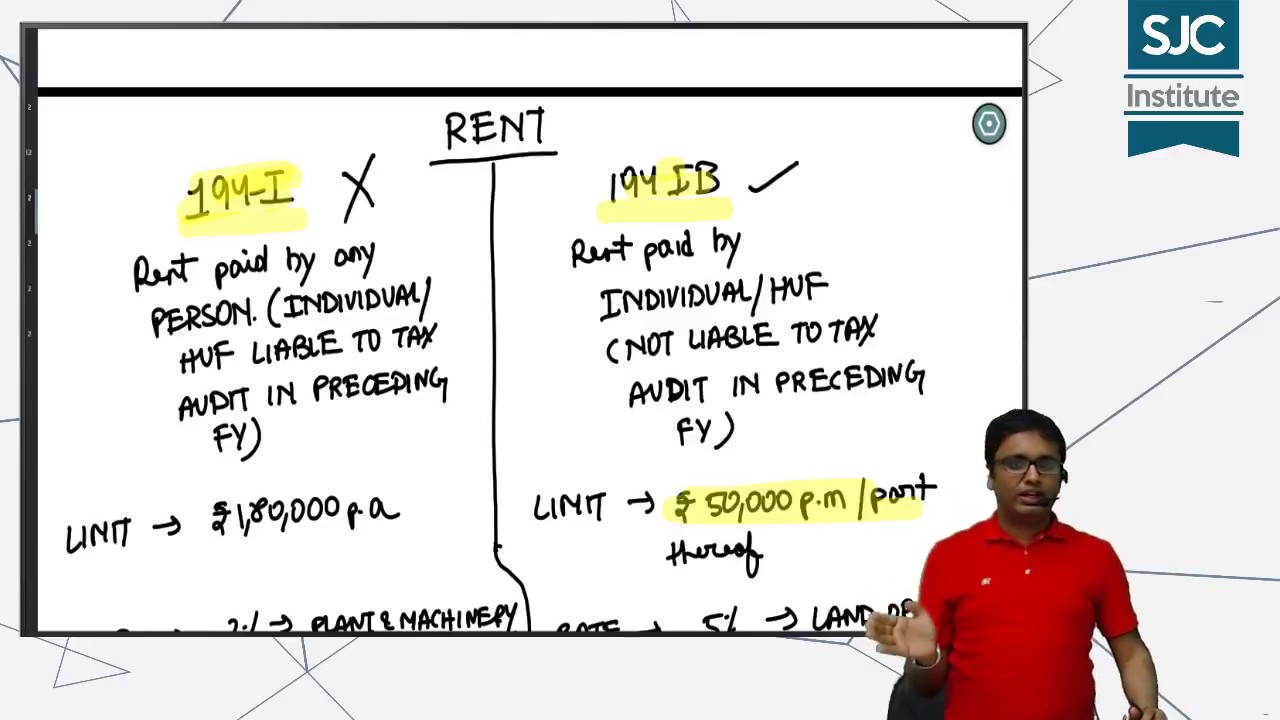 SJC
Institute
RENT
194-I X
Rent paid by any
PERSON. (INDIVIDUAL/
HUF LIABLE TO TAX
AUDIT IN PRECEDING
FY)
LIMIT → ₹ 1,80,000 p.a
2% → PLANT & MACHINERY
194 IB ✓
Rent paid by
INDIVIDUAL/HUF
(NOT LIABLE TO TAX
AUDIT IN PRECEDING
FY)
LIMIT → ₹ 50,000 p.m/part
thereof
RATE → 5% → LAND OR